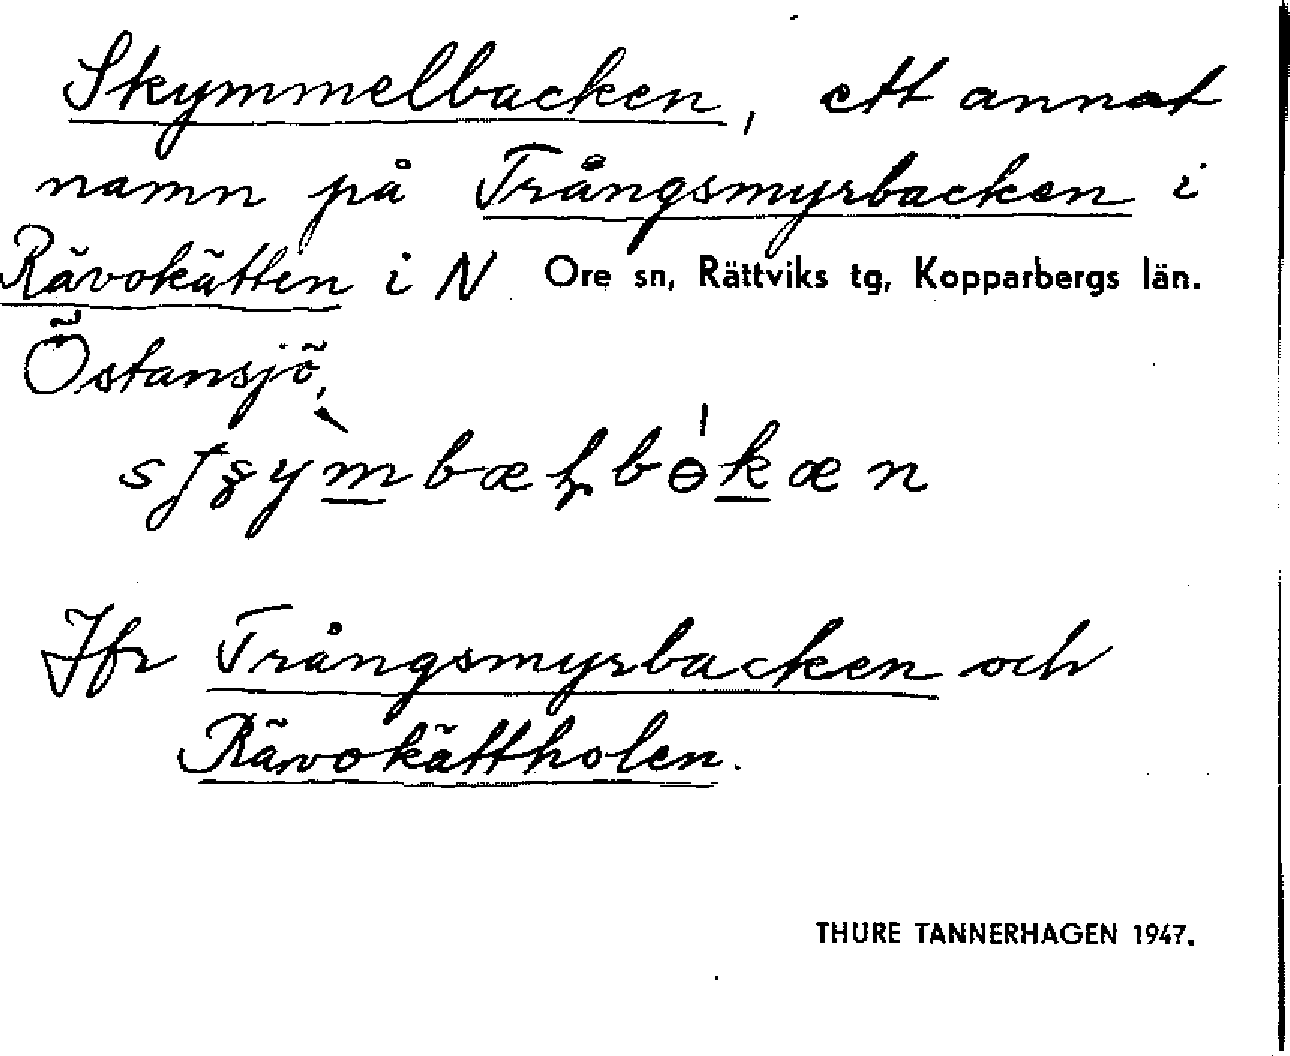 Skymmelbacken, ett annat
namn på Trångsmyrbacken i
Rävokätten i N Ore sn, Rättviks tg, Kopparbergs län.
Östansjö,
Jfr Trångsmyrbacken och
Rävokättholen.
THURE TANNERHAGEN 1947.